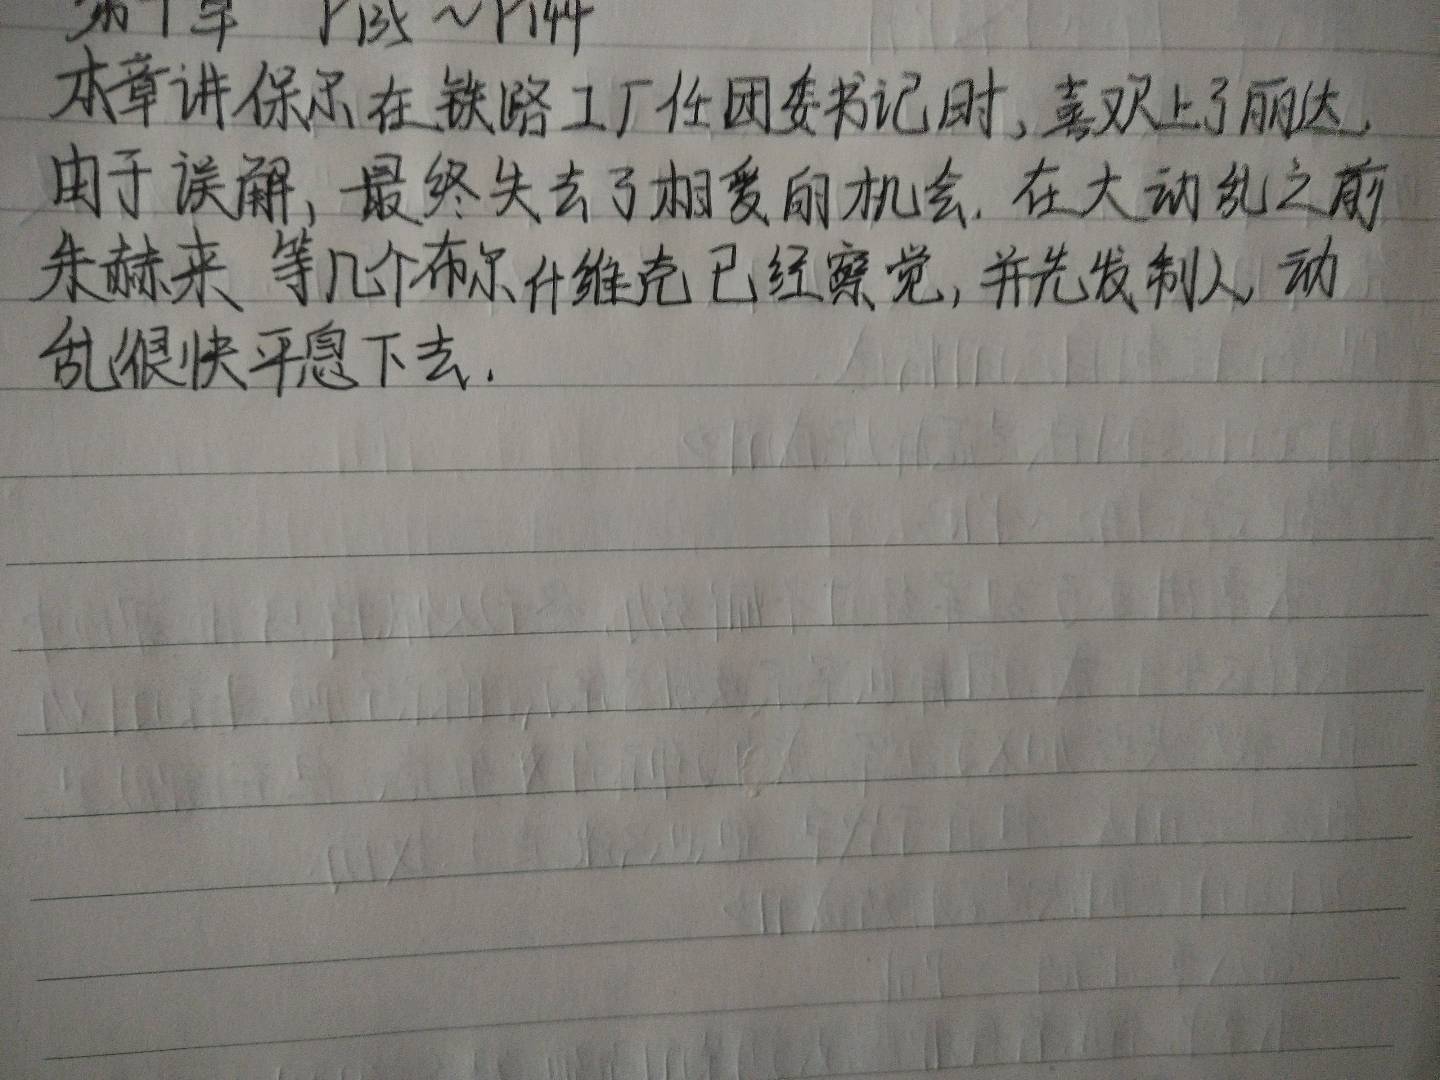 章 ~P144
本章讲保尔在铁路工厂任团委书记时,喜欢上了丽达,
由于误解,最终失去了相爱的机会.在大动乱之前
朱赫来等几个布尔什维克已经察觉,并先发制人,动
乱很快平息下去.